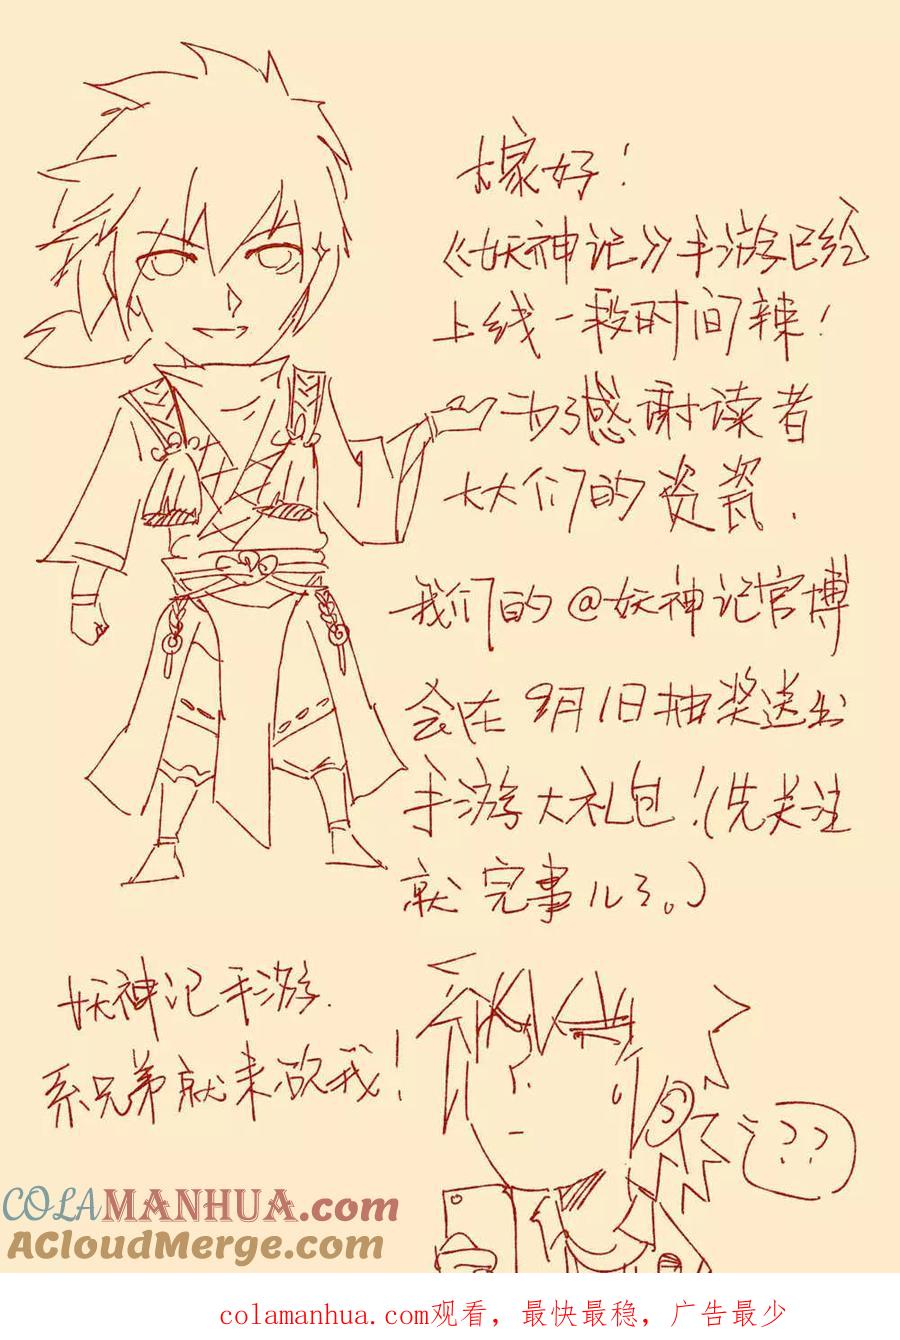 大家好！
《妖神记》手游已经
上线一段时间辣！
为了感谢读者
大大们的资瓷.
我们的@妖神记官博
会在9月1日抽奖送出
手游大礼包！(先关注
就完事儿了。)
妖神记手游.
系兄弟就来砍我！
??
COLAMANHUA.com
ACloudMerge.com
colamanhua.com观看，最快最稳，广告最少